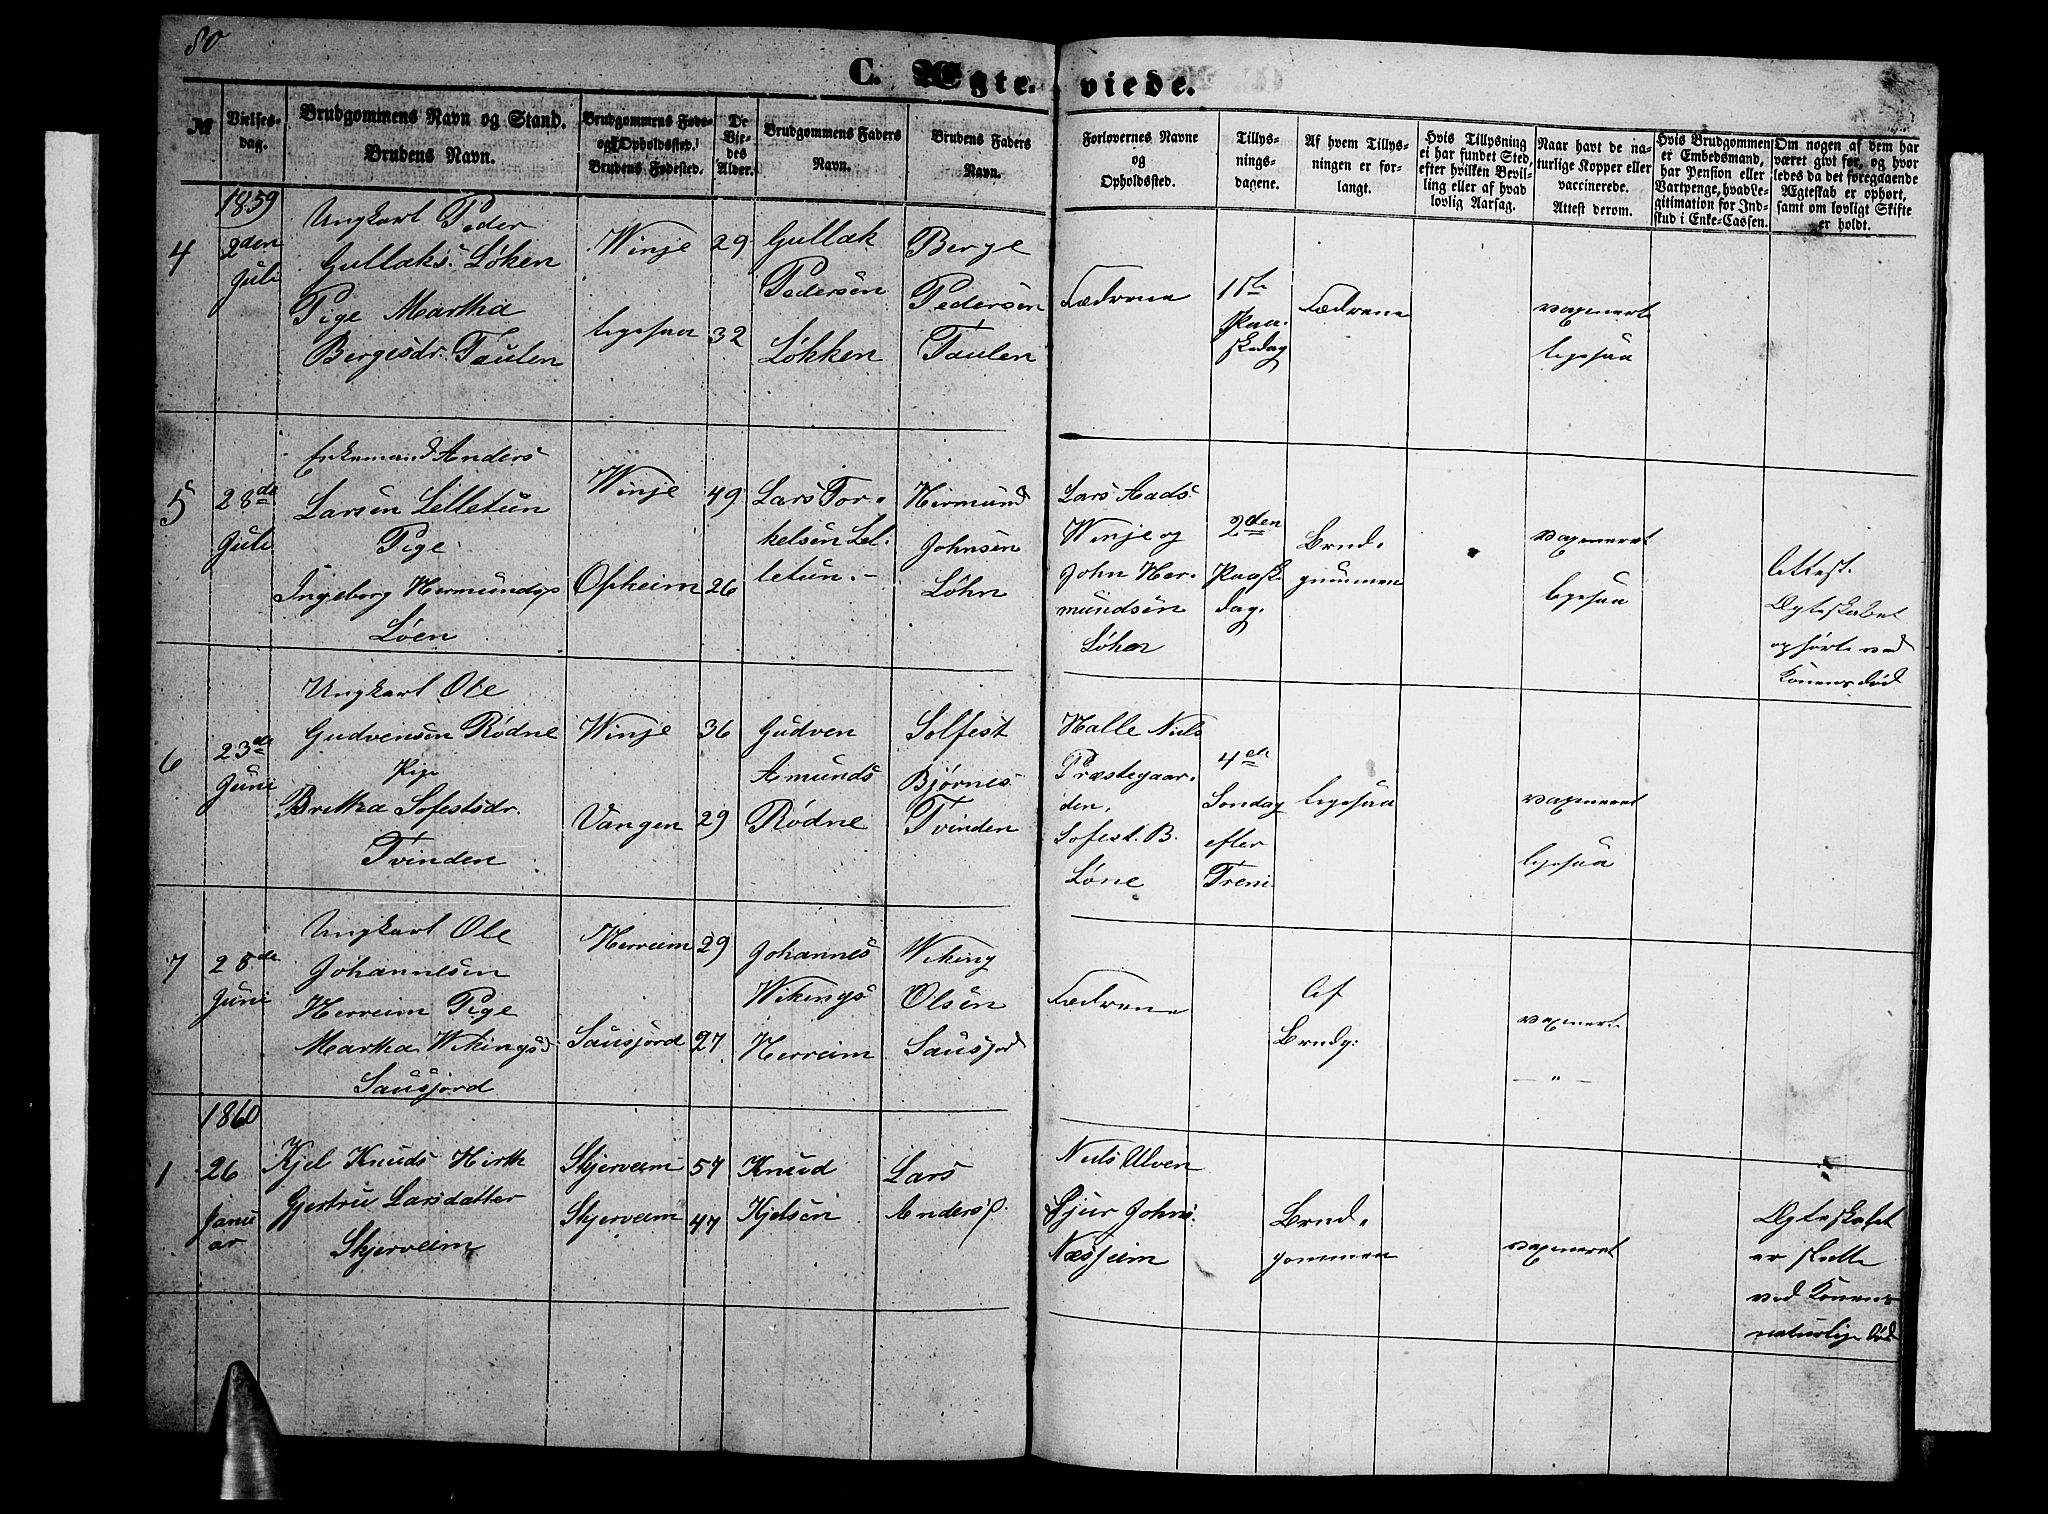 80
C. Ægte-viede.
№
Vielses-
dag.
Brudgommens Navn og Stand.
Brudens Navn.
Brudgommens Føde-
og Opholdssted.
Brudens Fødested.
De
Vie-
des
Alder.
Brudgommens Faders
Navn.
Brudens Faders
Navn.
Forlovernes Navne
og
Opholdssted.
Tillys-
nings-
dagene.
Af hvem Tillys-
ningen er for-
langt.
Hvis Tillysning
ei har fundet Sted,
efter hvilken Bevil-
ling eller af hvad
lovlig Aarsag.
Naar havt de na-
turlige Kopper eller
vaccinerede.
Attest derom.
Hvis Brudgommen
er Embedsmand,
har Pension eller
Vartpenge, hvad Le-
gitimation for Ind-
skud i Enke-Cassen.
Om nogen af dem har
været givt før, og hvor
ledes da det foregaaende
Ægteskab er ophørt,
samt om lovligt Skifte
er holdt.
1859
4
2den
Juli
Ungkarl Peder
Gullaks. Løken
Pige Martha
Bergesdr. Taulen
Winje
ligesaa
29
32
Gullak
Pedersen
Løkken
Berge
Pedersen
Taulen
Fædrene
1ste
Paa-
skedag
Fædrene
vaxineret
ligesaa
5
28de
Juli
Enkemand Anders
Larsen Lilletun
Pige
Ingeborg Hermundsd
Løen
Winje
Opheim
49
26
Lars Tor-
kelsen Lil-
letun.-
Hermund
Johnsen
Løhn
Lars Aads.
Winje og
John Her-
mundsen
Løhen
2den
Paask-
dag.
Brud-
gummen
vaxineret
ligesaa
Attest.
Ægteskabet
ophørte ved
Konens død
6
23de
Juni
Ungkarl Ole
Gudvensen Rødne
Pige
Britha Sofestsdr.
Tvinden
Winje
Vangen
36
29
Gudven
Amunds
Rødne
Solfest
Bjørnes
Tvinden
Halle Niels
Præstegaar-
den.
Sofest. B.
Løne
4de
Søndag
efter
Treni
ligesaa
vaxineret
ligesaa
7
28de
Juni
Ungkarl Ole
Johannesen
Herreim Pige
Martha Wikingsd
Sausjord
Herreim
Sausjord
29
27
Johannes
Wikings
Herreim
Wiking
Olsen
Sausjord
Fædrene
Af
Brudg:
vaxineret
— " —
1860
1
26
Janu
ar
Kjel Knuds Hirth
Gjertru Larsdatter
Skjerveim
Skjerveim
Skjerveim
57
47
Knud
Kjelsen
Lars
Anders.
Niels Ulven
Sjur Johns.
Næsheim
Brud-
gommen
vaxineret
Ægteskabet
er skilte
ved Konens
naturlige død